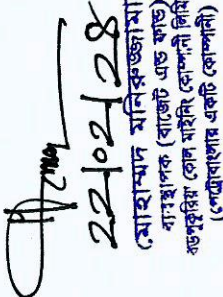 22/02/28
মোহাম্মদ মনিরুজ্জামা
ব্যবস্থাপক (বাজেট এন্ড ফান্ড)
বড়পুকুরিয়া কোল মাইনিং কোম্পানী লিমি
(পেট্রোবাংলার একটি কোম্পানী)